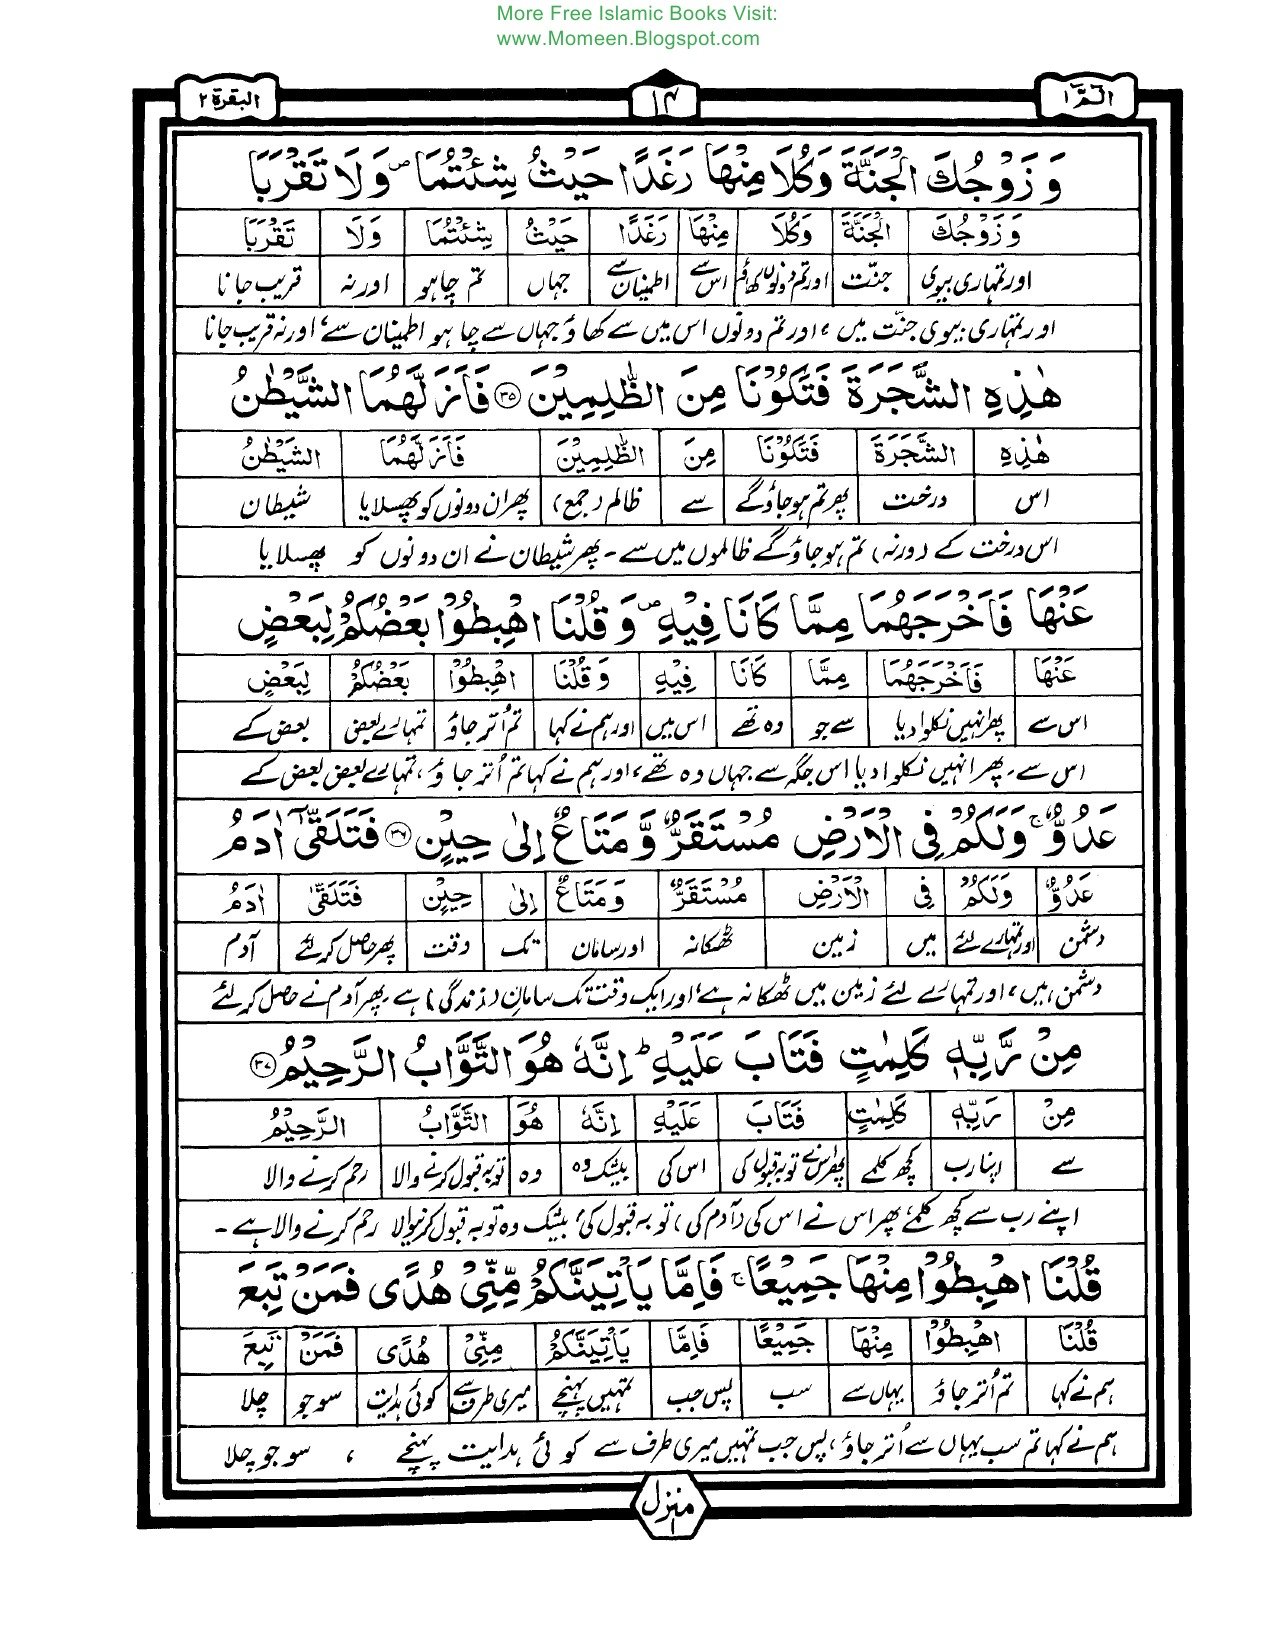 More Free Islamic Books Visit:
www.Momeen.Blogspot.com
الٓمّٓ ۱ ۱۴ البقرة ۲
وَ زَوْجُكَ الْجَنَّةَ وَكُلَا مِنْهَا رَغَدًا حَيْثُ شِئْتُمَا ۪ وَلَا تَقْرَبَا
وَ زَوْجُكَ الْجَنَّةَ وَكُلَا مِنْهَا رَغَدًا حَيْثُ شِئْتُمَا وَلَا تَقْرَبَا
اور تمہاری بیوی جنّت اور تم دونوں کھاؤ اس سے اطمینان سے جہاں تم چاہو اور نہ قریب جانا
اور تمہاری بیوی جنّت میں، اور تم دونوں اس میں سے کھاؤ جہاں سے چاہو اطمینان سے، اور نہ قریب جانا
هٰذِهِ الشَّجَرَةَ فَتَكُوْنَا مِنَ الظّٰلِمِيْنَ ۳۵ فَاَزَلَّهُمَا الشَّيْطٰنُ
هٰذِهِ الشَّجَرَةَ فَتَكُوْنَا مِنَ الظّٰلِمِيْنَ فَاَزَلَّهُمَا الشَّيْطٰنُ
اس درخت پھر تم ہو جاؤ گے سے ظالم (جمع) پھر ان دونوں کو پھسلایا شیطان
اس درخت کے (ورنہ) تم ہو جاؤ گے ظالموں میں سے ۔ پھر شیطان نے ان دونوں کو پھسلایا
عَنْهَا فَاَخْرَجَهُمَا مِمَّا كَانَا فِيْهِ ۪ وَ قُلْنَا اهْبِطُوْا بَعْضُكُمْ لِبَعْضٍ
عَنْهَا فَاَخْرَجَهُمَا مِمَّا كَانَا فِيْهِ وَ قُلْنَا اهْبِطُوْا بَعْضُكُمْ لِبَعْضٍ
اس سے پھر انہیں نکلوا دیا سے جو وہ تھے اس میں اور ہم نے کہا تم اُتر جاؤ تمہارے بعض بعض کے
اس سے۔ پھر انہیں نکلوا دیا اس جگہ سے جہاں وہ تھے، اور ہم نے کہا تم اُتر جاؤ، تمہارے بعض بعض کے
عَدُوٌّ ۚ وَلَكُمْ فِى الْاَرْضِ مُسْتَقَرٌّ وَّ مَتَاعٌ اِلٰى حِيْنٍ ۳۶ فَتَلَقّٰٓى اٰدَمُ
عَدُوٌّ وَلَكُمْ فِى الْاَرْضِ مُسْتَقَرٌّ وَ مَتَاعٌ اِلٰى حِيْنٍ فَتَلَقّٰى اٰدَمُ
دشمن اور تمہارے لئے میں زمین ٹھکانہ اور سامان تک وقت پھر حاصل کر لئے آدم
دشمن ہیں، اور تمہارے لئے زمین میں ٹھکانہ ہے، اور ایک وقت تک سامان (زندگی) ہے۔ پھر آدم نے حاصل کر لئے
مِنْ رَّبِّهٖ كَلِمٰتٍ فَتَابَ عَلَيْهِ ؕ اِنَّهٗ هُوَ التَّوَّابُ الرَّحِيْمُ ۳۷
مِنْ رَبِّهٖ كَلِمٰتٍ فَتَابَ عَلَيْهِ اِنَّهٗ هُوَ التَّوَّابُ الرَّحِيْمُ
سے اپنا رب کچھ کلمے پھر اس نے توبہ قبول کی اس کی بیشک وہ وہ توبہ قبول کرنے والا رحم کرنے والا
اپنے رب سے کچھ کلمے، پھر اس نے اس کی (آدم کی) توبہ قبول کی، بیشک وہ توبہ قبول کرنیوالا رحم کرنے والا ہے ۔
قُلْنَا اهْبِطُوْا مِنْهَا جَمِيْعًا ۚ فَاِمَّا يَاْتِيَنَّكُمْ مِّنِّىْ هُدًى فَمَنْ تَبِعَ
قُلْنَا اهْبِطُوْا مِنْهَا جَمِيْعًا فَاِمَّا يَاْتِيَنَّكُمْ مِنِّىْ هُدًى فَمَنْ تَبِعَ
ہم نے کہا تم اُتر جاؤ یہاں سے سب پس جب تمہیں پہنچے میری طرف سے کوئی ہدایت سو جو چلا
ہم نے کہا تم سب یہاں سے اُتر جاؤ، پس جب تمہیں میری طرف سے کوئی ہدایت پہنچے ، سو جو چلا
منزل ۱